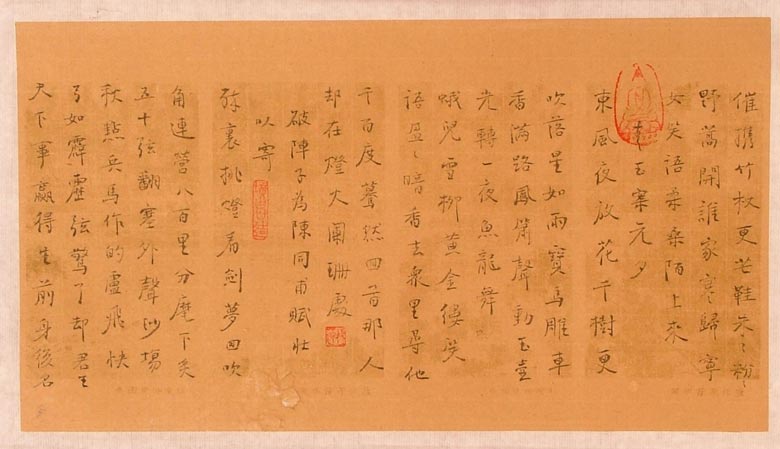 催携竹杖更芒鞋朱〻粉〻
野蒿開誰家寒歸寧
女笑語柔桑陌上來
青玉案元夕
東風夜放花千樹更
吹落星如雨寶馬雕車
香滿路鳳簫聲動玉壺
光轉一夜魚龍舞
蛾兒雪柳黄金縷笑
語盈〻暗香去衆里尋他
千百度驀然回首那人
却在燈火闌珊處
破陣子為陳同甫賦壯
以寄
醉裏挑燈看劍夢回吹
角連營八百里分麾下炙
五十弦翻塞外聲沙場
秋點兵馬作的盧飛快
弓如霹靂弦驚了却君王
天下事贏得生前身後名